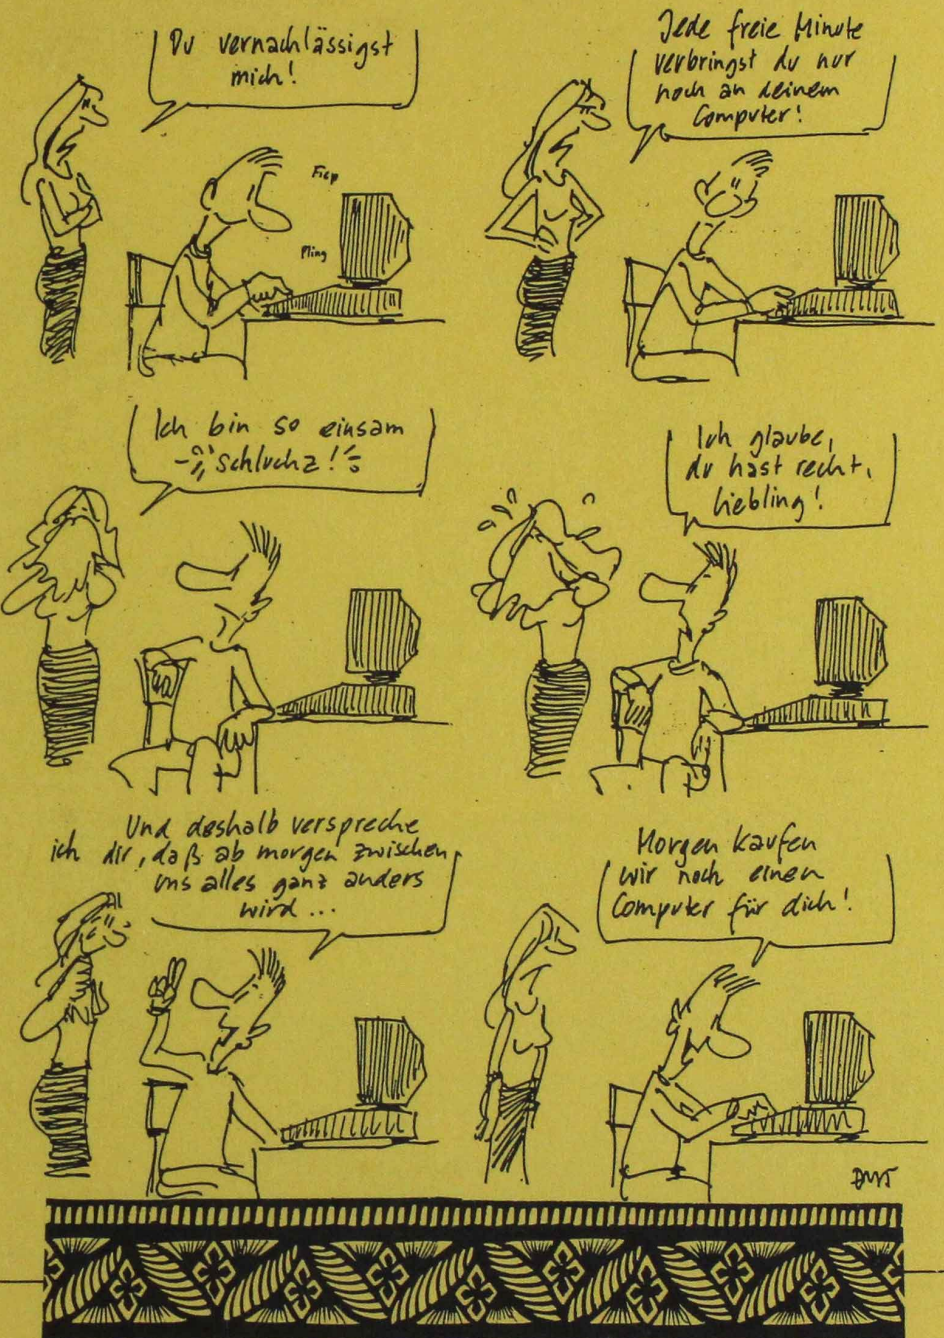 Du vernachlässigst
mich!
Fiep
Pling
Jede freie Minute
verbringst du nur
noch an deinem
Computer!
Ich bin so einsam
schluchz!
Ich glaube,
du hast recht,
Liebling!
Und deshalb verspreche
ich dir, daß ab morgen zwischen
uns alles ganz anders
wird ...
Morgen kaufen
wir noch einen
Computer für dich!